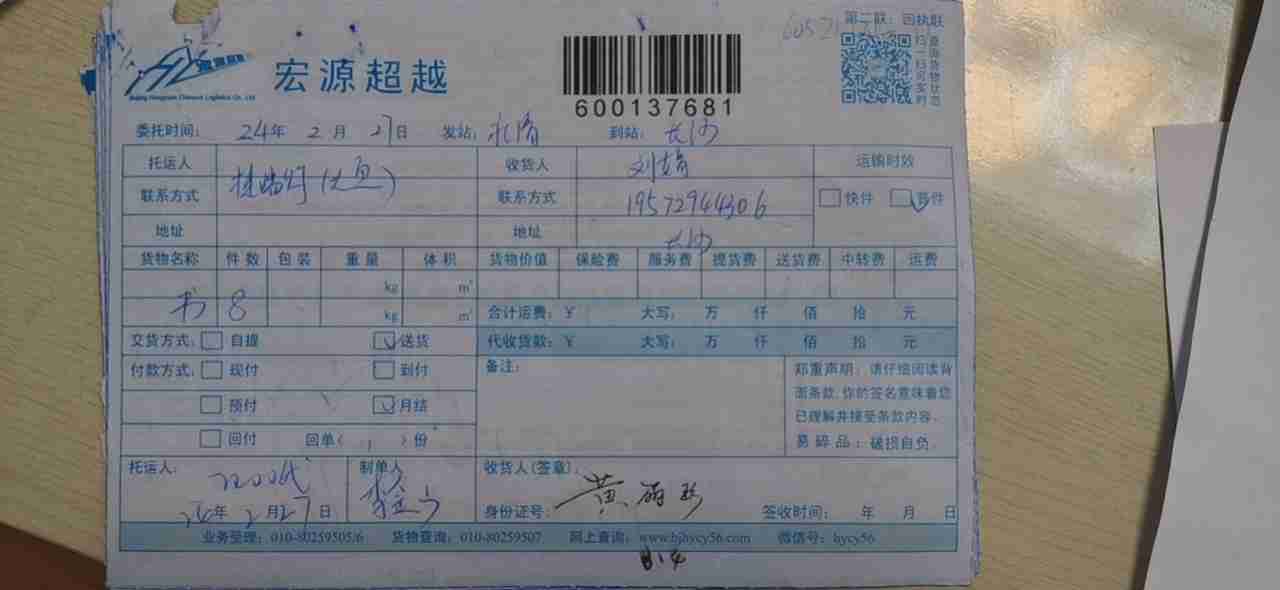 第二联：回执联
宏源超越
Beijing Hongyuan Chaoyue Logistics Co., Ltd
扫一扫可实时
查询货物状态
600137681
委托时间： 24年 2月 27日 发站： 到站：长沙
托运人 收货人 刘娟 运输时效
联系方式 联系方式 19572944306 快件 普件
地址 地址 长沙
货物名称 件数 包装 重量 体积 货物价值 保险费 服务费 提货费 送货费 中转费 运费
kg m³
书 8 kg m³ 合计运费：¥ 大写： 万 仟 佰 拾 元
交货方式： 自提 送货 代收货款：¥ 大写： 万 仟 佰 拾 元
付款方式： 现付 到付 备注：
预付 月结
回付 回单( 1 )份
郑重声明：请仔细阅读背
面条款,你的签名意味着您
已理解并接受条款内容。
易碎品：破损自负。
托运人： 制单人 收货人(签章)：黄丽珍
24年 2月27日 身份证号： 签收时间： 年 月 日
业务受理：010-80259505/6 货物查询：010-80259507 网上查询：www.bjhycy56.com 微信号：hycy56